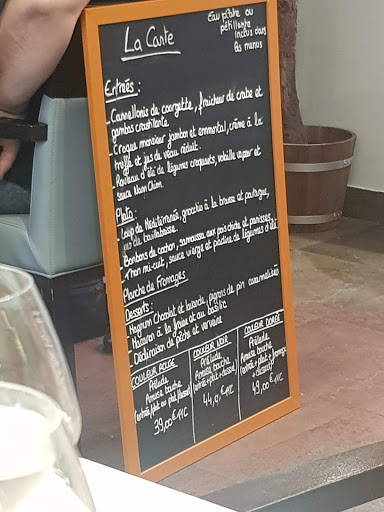 La Carte
Eau plate ou
pétillante
inclus dans
les menus
Entrées :
- Cannellonis de courgette, fraîcheur de crabe et
gambas croustillante
- Croque monsieur jambon et emmental, crème à la
truffe et jus de veau réduit.
- Rouleau d'été de légumes croquants, volaille vapeur et
sauce Nam Chim.
Plats :
- Loup de Méditérrannée, gnocchis à la brousse et
jus de bouillabaisse.
- Bonbons de cochon, samoussa aux pois chiche et panisses
- Thon mi-cuit, sauce vierge et pickles de légumes d'été
Planche de Fromages
Desserts :
- Chocolat et pignons de pin caramélisés
- Macaron à la fraise et au basilic
- Déclinaison de pêche et verveine
COULEUR ROUGE
Prélude
Amuse bouche
(entrée/plat ou plat/dessert)
39,00 € TTC
COULEUR NOIR
Prélude
Amuse bouche
(entrée + plat + dessert)
44,00 € TTC
COULEUR DORÉE
Prélude
Amuse bouche
(entrée + plat + fromage
+ dessert)
49,00 € TTC